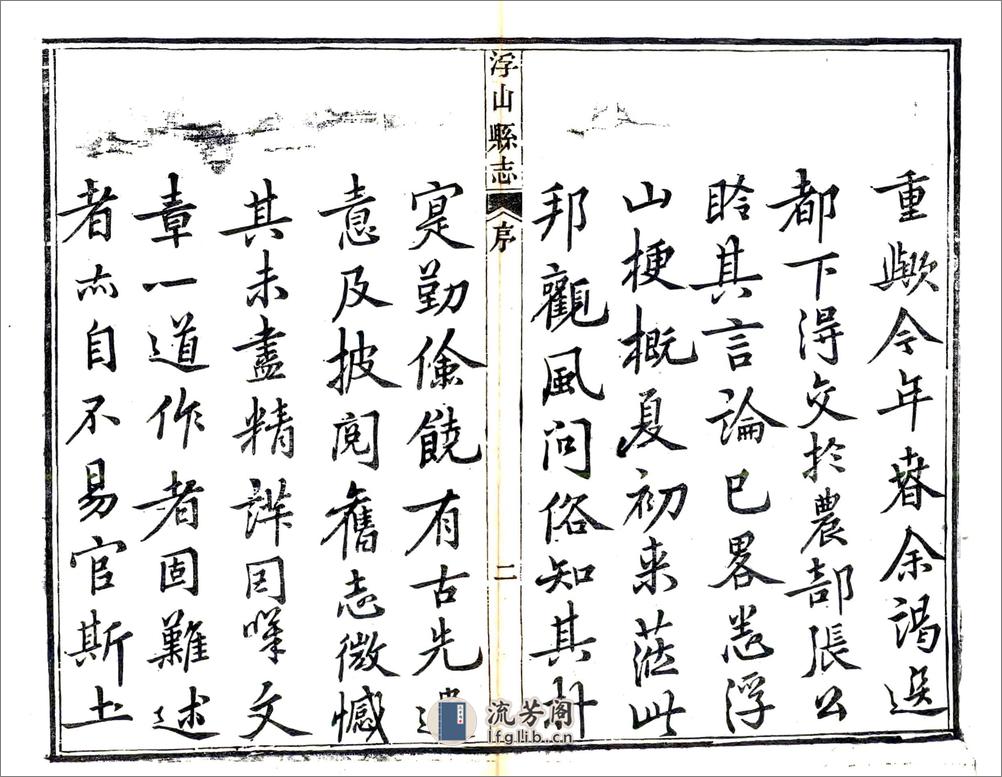 重歟今年春余謁選
都下得交於農部張公
聆其言論已畧悉浮
山梗概夏初来蒞此
邦觀風問俗知其朴
浮山縣志
序
二
寔勤儉饒有古先遺
意及披閲舊志微憾
其未盡精詳因嘆文
章一道作者固難述
者亦自不易官斯土
流芳阁
lfglib.cn